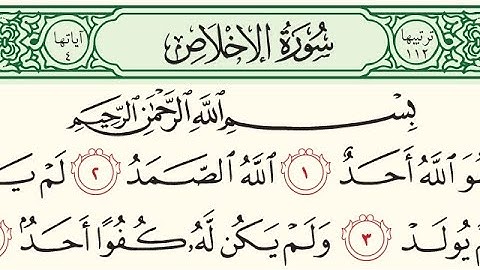 ترتيبها ١١٢ سُورَةُ الإِخْلَاصِ آياتها ٤
بِسْمِ اللَّهِ الرَّحْمَٰنِ الرَّحِيمِ
وَ اللَّهُ أَحَدٌ ١ اللَّهُ الصَّمَدُ ٢ لَمْ يَـ
يُولَدْ ٣ وَلَمْ يَكُن لَّهُۥ كُفُوًا أَحَدٌۢ